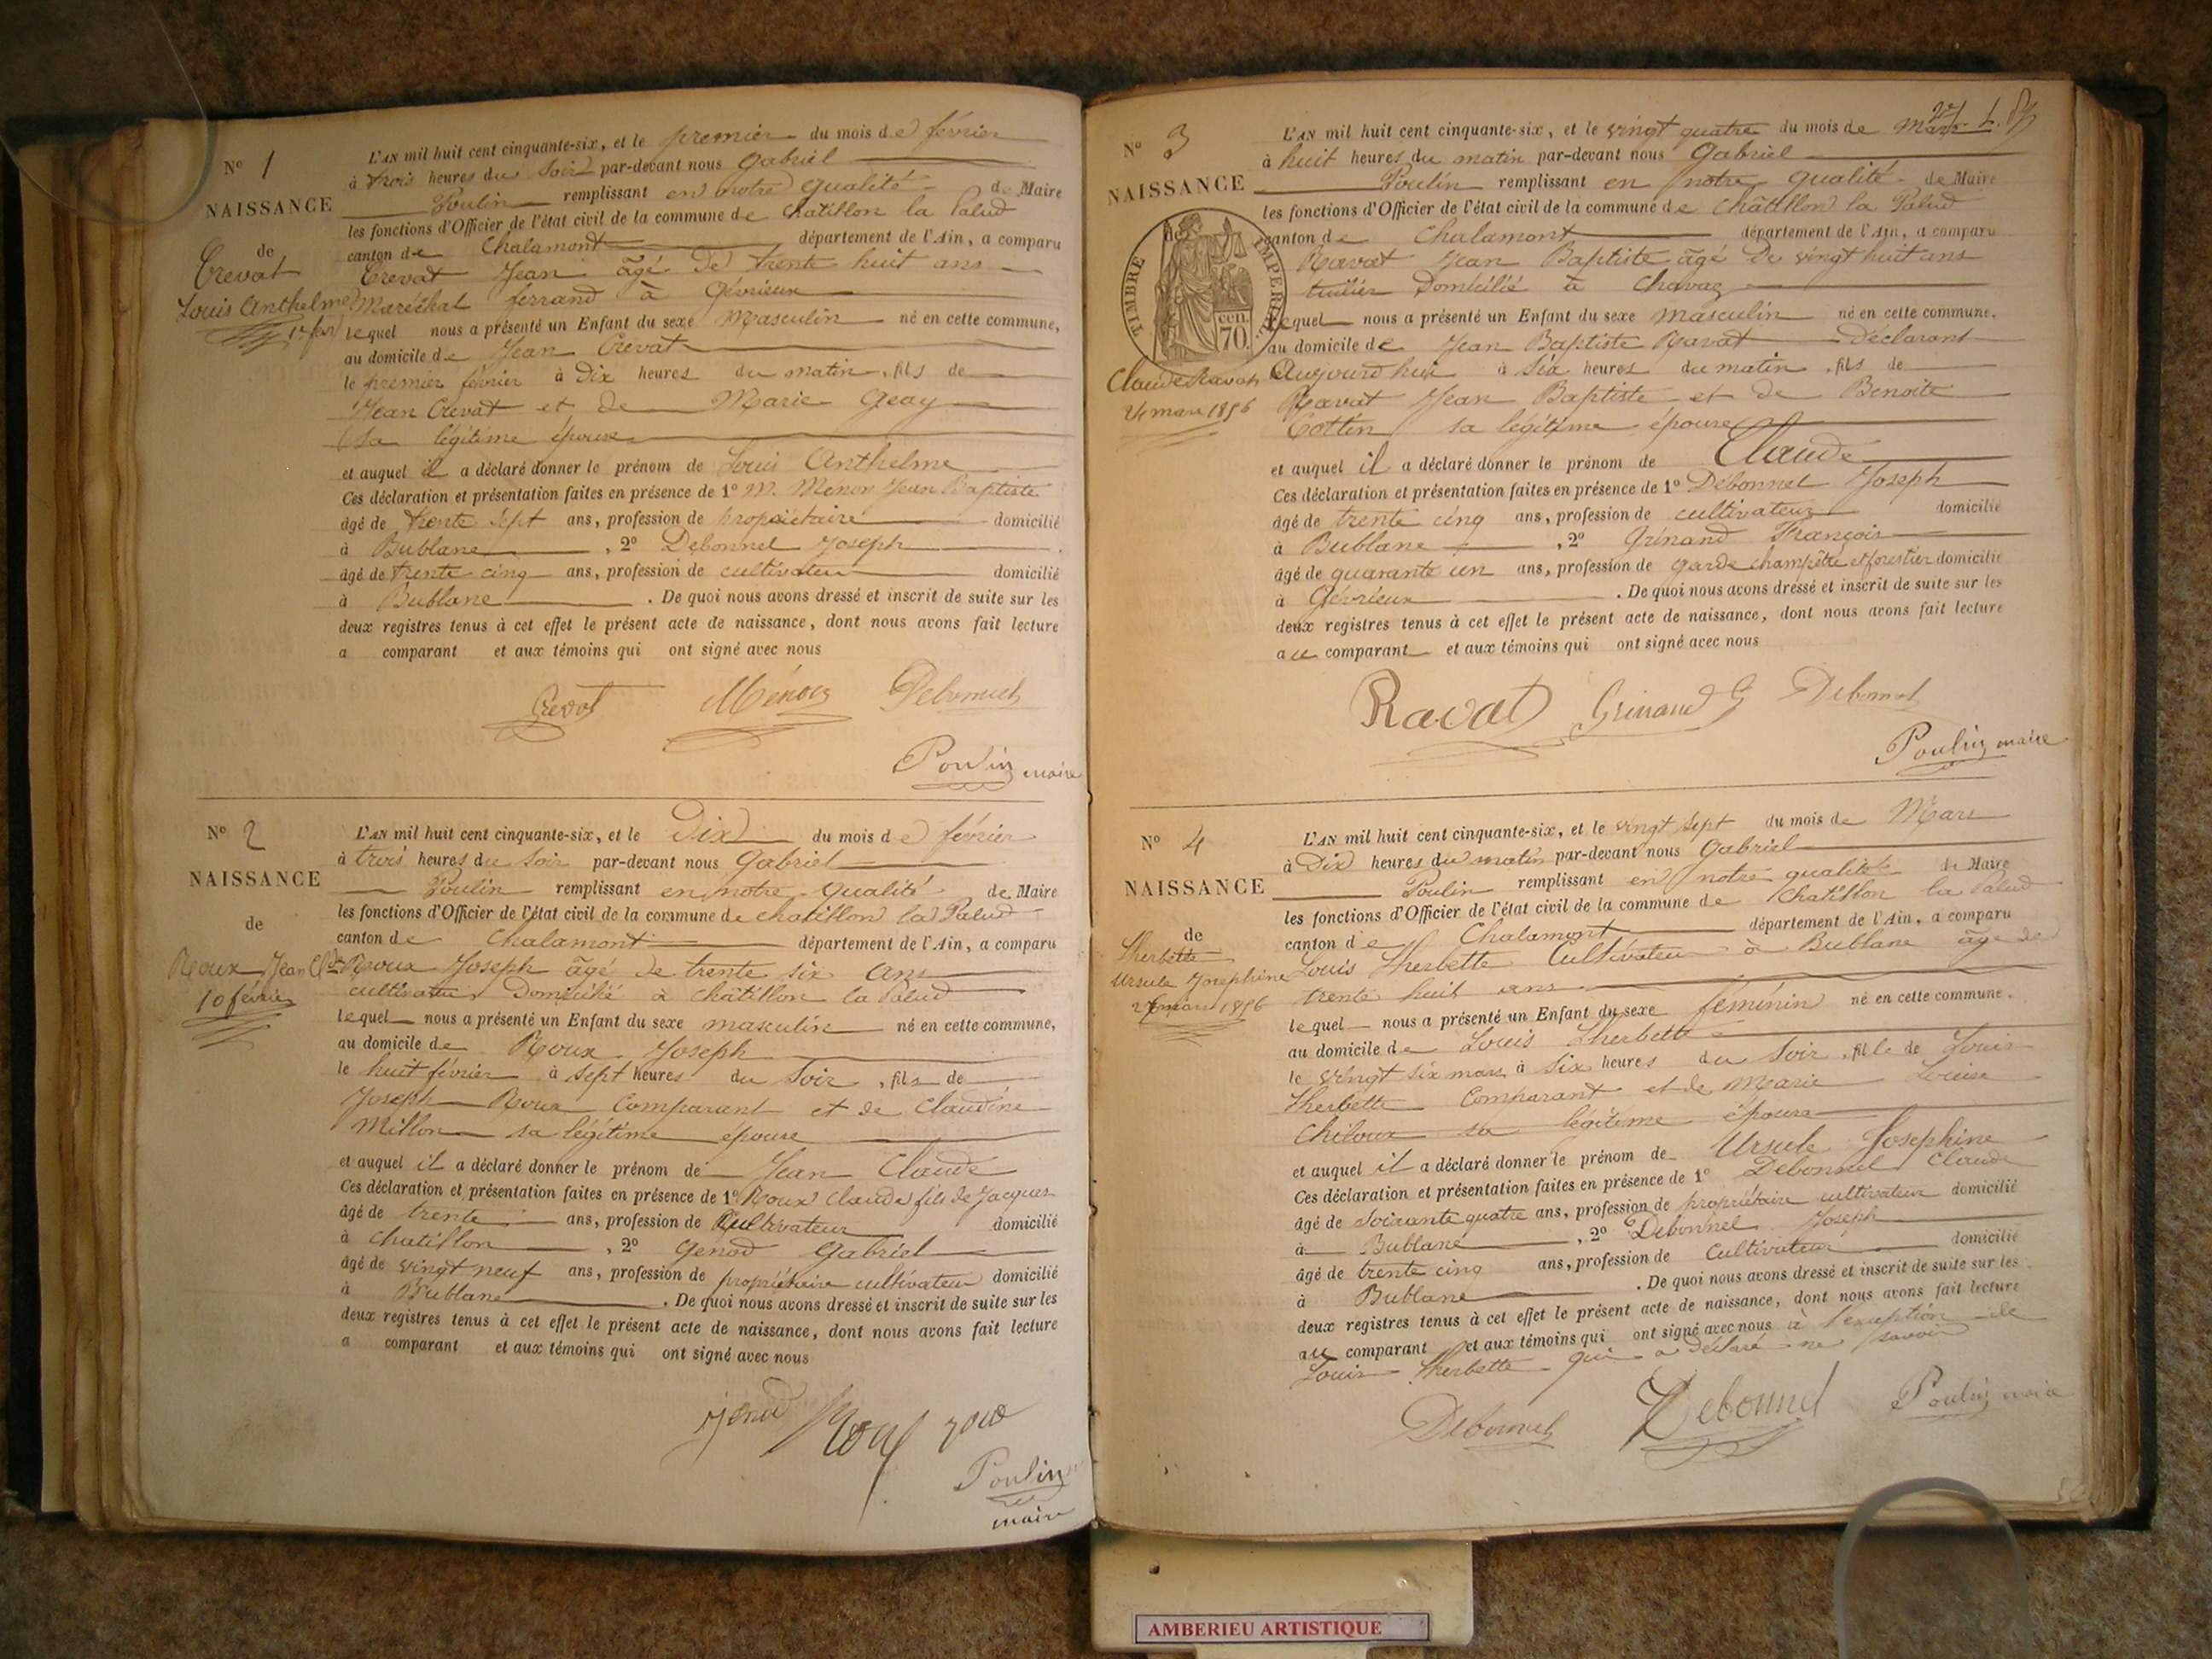 N° 1
NAISSANCE
de
Crevat
Louis Anthelme
1er fév
L'AN mil huit cent cinquante-six, et le premier du mois de février
à trois heures du soir par-devant nous Gabriel
Poulin remplissant en notre qualité de Maire
les fonctions d'Officier de l'état civil de la commune de Chatillon la Palud
canton de Chalamont département de l'Ain, a comparu
Crevat Jean âgé de trente huit ans
Maréchal ferrand à Gévrieux
lequel nous a présenté un Enfant du sexe Masculin né en cette commune,
au domicile de Jean Crevat
le premier février à dix heures du matin, fils de
Jean Crevat et de Marie Geay
sa légitime épouse
et auquel il a déclaré donner le prénom de Louis Anthelme
Ces déclaration et présentation faites en présence de 1° M. Menon Jean Baptiste
âgé de trente sept ans, profession de propriétaire domicilié
à Bublane, 2° Debonnel Joseph
âgé de trente cinq ans, profession de cultivateur domicilié
à Bublane. De quoi nous avons dressé et inscrit de suite sur les
deux registres tenus à cet effet le présent acte de naissance, dont nous avons fait lecture
a comparant et aux témoins qui ont signé avec nous
Crevat Menon Debonnel
Poulin maire
N° 2
NAISSANCE
de
Roux Jean Cde
10 février
L'AN mil huit cent cinquante-six, et le Dix du mois de février
à trois heures du soir par-devant nous Gabriel
Poulin remplissant en notre qualité de Maire
les fonctions d'Officier de l'état civil de la commune de chatillon la Palud
canton de Chalamont département de l'Ain, a comparu
Roux Joseph âgé de trente six ans
cultivateur Domicilié à châtillon la Palud
lequel nous a présenté un Enfant du sexe masculin né en cette commune,
au domicile de Roux Joseph
le huit février à sept heures du soir, fils de
Joseph Roux Comparant et de Claudine
Millon sa légitime épouse
et auquel il a déclaré donner le prénom de Jean Claude
Ces déclaration et présentation faites en présence de 1° Roux Claude fils de Jacques
âgé de trente ans, profession de Cultivateur domicilié
à chatillon, 2° Genod Gabriel
âgé de vingt neuf ans, profession de propriétaire cultivateur domicilié
à Bublane. De quoi nous avons dressé et inscrit de suite sur les
deux registres tenus à cet effet le présent acte de naissance, dont nous avons fait lecture
a comparant et aux témoins qui ont signé avec nous
genod Roux
Poulin
maire
N° 3
NAISSANCE
de
TIMBRE IMPERIAL
cen.
70.
Claude Ravat
24 mars 1856
L'AN mil huit cent cinquante-six, et le vingt quatre du mois de Mars
à huit heures du matin par-devant nous Gabriel
Poulin remplissant en notre qualité de Maire
les fonctions d'Officier de l'état civil de la commune de Châtillon la Palud
canton de Chalamont département de l'Ain, a comparu
Ravat Jean Baptiste âgé De vingt huit ans
tuilier Domicilié à Chavag
lequel nous a présenté un Enfant du sexe masculin né en cette commune,
au domicile de Jean Baptiste Ravat Déclarant
Aujourd'hui à six heures du matin, fils de
Ravat Jean Baptiste et de Benoite
Cottin sa légitime épouse
et auquel il a déclaré donner le prénom de Claude
Ces déclaration et présentation faites en présence de 1° Debonnel Joseph
âgé de trente cinq ans, profession de cultivateur domicilié
à Bublane, 2° Grinand François
âgé de quarante un ans, profession de garde champêtre et forestier domicilié
à Gévrieux. De quoi nous avons dressé et inscrit de suite sur les
deux registres tenus à cet effet le présent acte de naissance, dont nous avons fait lecture
au comparant et aux témoins qui ont signé avec nous
Ravat Grinand G Debonnel
Poulin maire
N° 4
NAISSANCE
de
Lherbette
Ursule Josephine
27 mars 1856
L'AN mil huit cent cinquante-six, et le vingt sept du mois de Mars
à Dix heures du matin par-devant nous Gabriel
Poulin remplissant en notre qualité de Maire
les fonctions d'Officier de l'état civil de la commune de Chatillon la Palud
canton de Chalamont département de l'Ain, a comparu
Louis Lherbette Cultivateur à Bublane âgé de
trente huit ans
lequel nous a présenté un Enfant du sexe féminin né en cette commune,
au domicile de Louis Lherbette
le vingt six mars à six heures du soir, fille de Louis
Lherbette Comparant et de Marie Louise
Chiloux sa légitime épouse
et auquel il a déclaré donner le prénom de Ursule Josephine
Ces déclaration et présentation faites en présence de 1° Debonnel Claude
âgé de soixante quatre ans, profession de propriétaire cultivateur domicilié
à Bublane, 2° Debonnel Joseph
âgé de trente cinq ans, profession de Cultivateur domicilié
à Bublane. De quoi nous avons dressé et inscrit de suite sur les
deux registres tenus à cet effet le présent acte de naissance, dont nous avons fait lecture
au comparant et aux témoins qui ont signé avec nous à l'exception de
Louis Lherbette qui a déclaré ne savoir
Debonnel Debonnel Poulin maire
AMBERIEU ARTISTIQUE